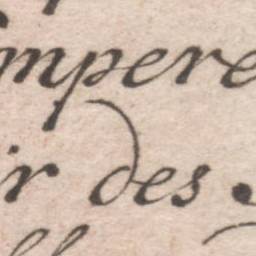 mpere
ir des